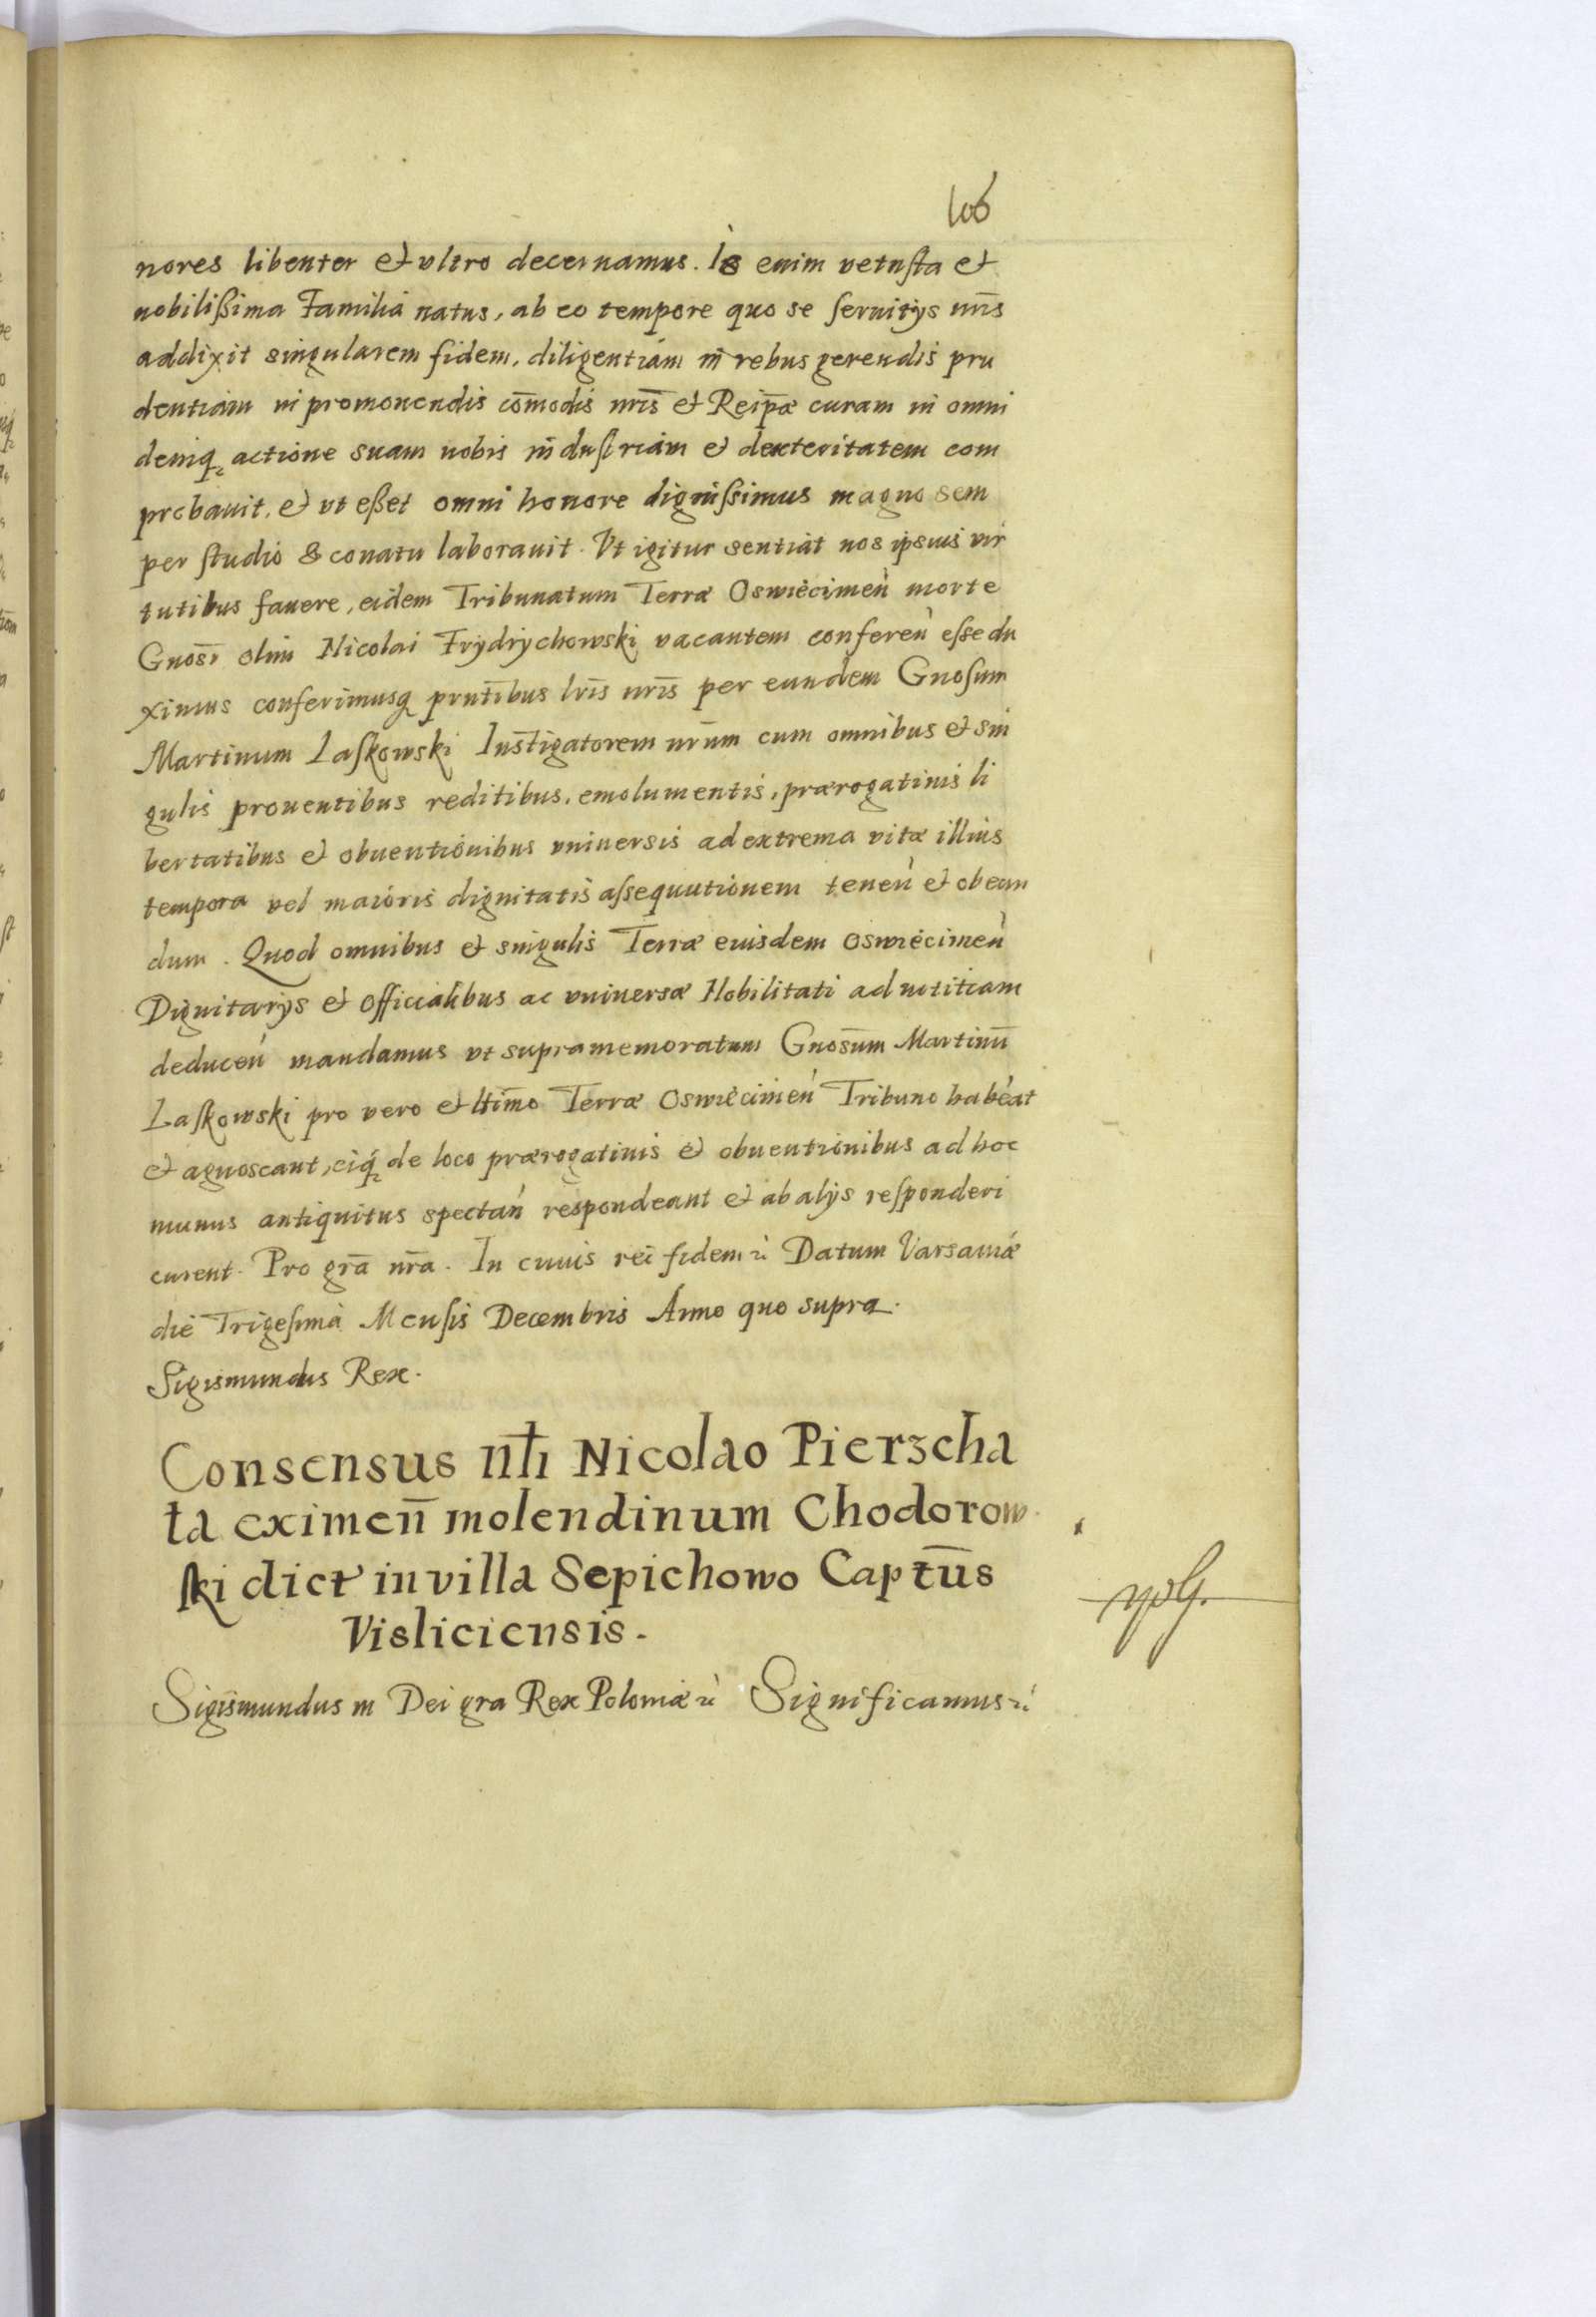 106
nores libenter et vltro decernamus. Is enim vetusta et
nobilißima Familia natus, ab eo tempore quo se seruitijs nr̄is
addixit singularem fidem, diligentiam in rebus gerendis pru
dentiam in promouendis com̄odis nr̄is et Reip̄æ curam in omni
deniq, actione suam nobis industriam et dexteritatem com
probauit, et vt eßet omni honore dignißimus magno sem
per studio & conatu laborauit. Vt igitur sentiat nos ipsius vir
tutibus fauere, eidem Tribunatum Terræ Oswiecimen̄ morte
Gnosi̅ olim Nicolai Frydrychowski vacantem conferen̄ esse du
ximus conferimusq prnt̄ibus lr̄is nr̄is per eundem Gnosum
Martinum Laskowski Instigatorem nr̄um cum omnibus et sin
gulis prouentibus reditibus, emolumentis, prærogatiuis li
bertatibus et obuentionibus vniuersis ad extrema vitæ illius
tempora vel maioris dignitatis assequutionem tenen̄ et obeun
dum. Quod omnibus et singulis Terræ eiusdem Oswiecimen̄
Dignitarijs et Officialibus ac vniuersæ Nobilitati ad notitiam
deducen̄ mandamus vt supramemoratum Gnos̄um Martinū
Laskowski pro vero et ltim̄o Terræ Oswiecimen̄ Tribuno habeat
et agnoscant, eiq, de loco prærogatiuis et obuentionibus ad hoc
munus antiquitus spectan̄ respondeant et ab alijs responderi
curent. Pro gr̄a nr̄a. In cuius rei fidem &c Datum Varsauiæ
die Trigesima Mensis Decembris Anno quo supra.
Sigismundus Rex.
Consensus Nlī Nicolao Pierzcha
ła eximen̄ molendinum Chodorow
ski dict in villa Sepichowo Captūs
Visliciensis.
Sigismundus III Dei gra Rex Poloniæ &c Significamus &c